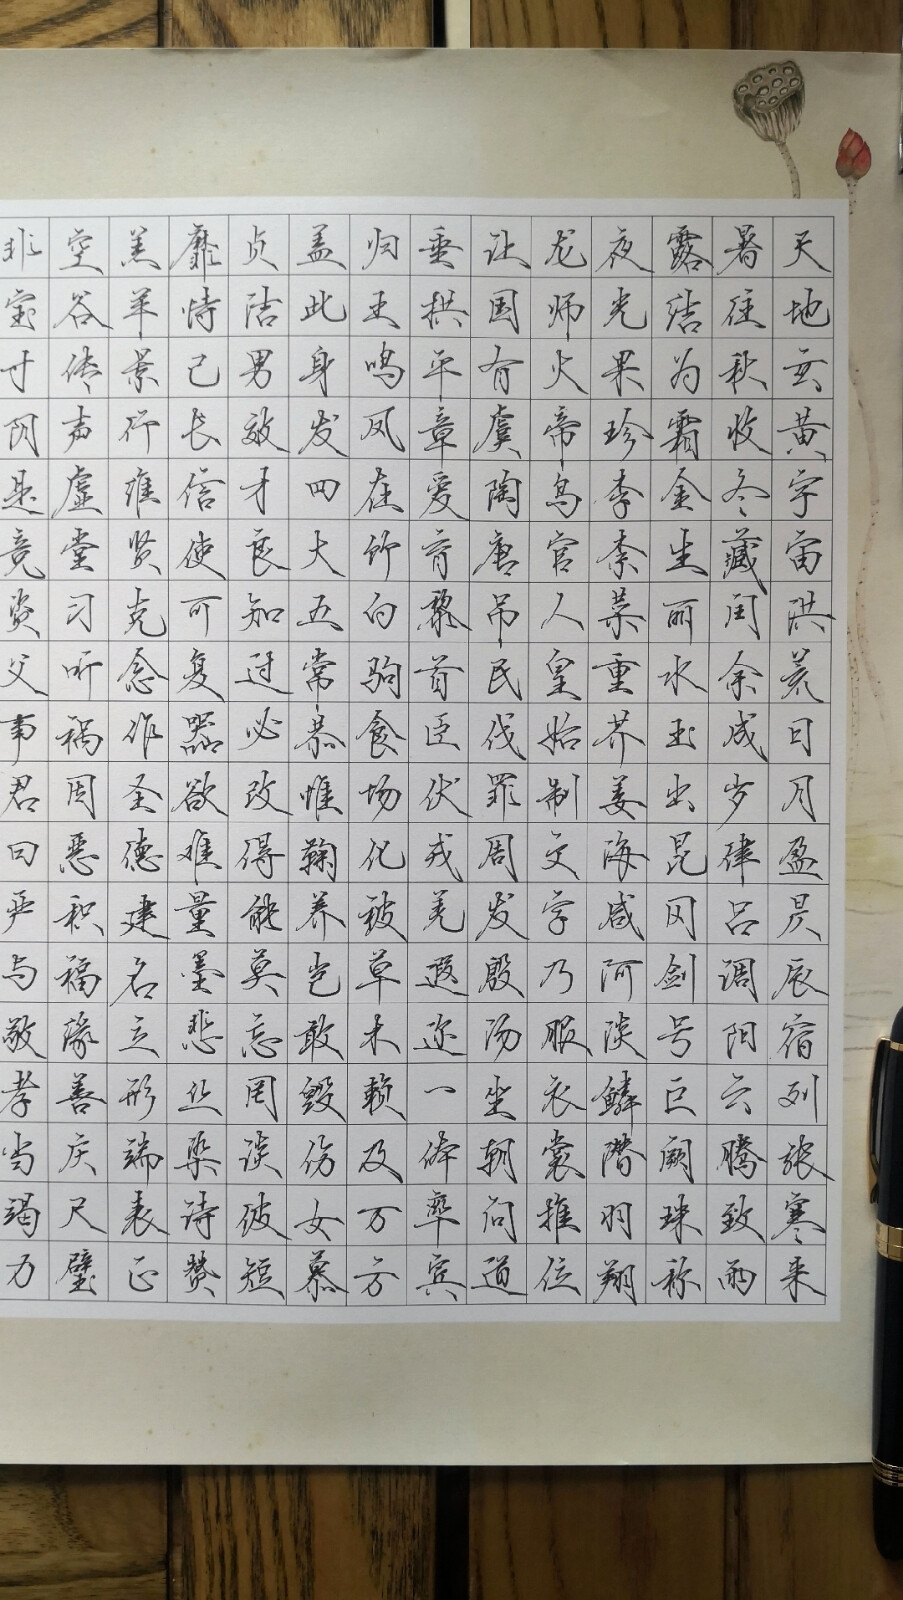 天地玄黄宇宙洪荒日月盈昃辰宿列张寒来
暑往秋收冬藏闰余成岁律吕调阳云腾致雨
露结为霜金生丽水玉出昆冈剑号巨阙珠称
夜光果珍李柰菜重芥姜海咸河淡鳞潜羽翔
龙师火帝鸟官人皇始制文字乃服衣裳推位
让国有虞陶唐吊民伐罪周发殷汤坐朝问道
垂拱平章爱育黎首臣伏戎羌遐迩一体率宾
归王鸣凤在竹白驹食场化被草木赖及万方
盖此身发四大五常恭惟鞠养岂敢毁伤女慕
贞洁男效才良知过必改得能莫忘罔谈彼短
靡恃己长信使可复器欲难量墨悲丝染诗赞
羔羊景行维贤克念作圣德建名立形端表正
空谷传声虚堂习听祸因恶积福缘善庆尺璧
非宝寸阴是竞资父事君曰严与敬孝当竭力